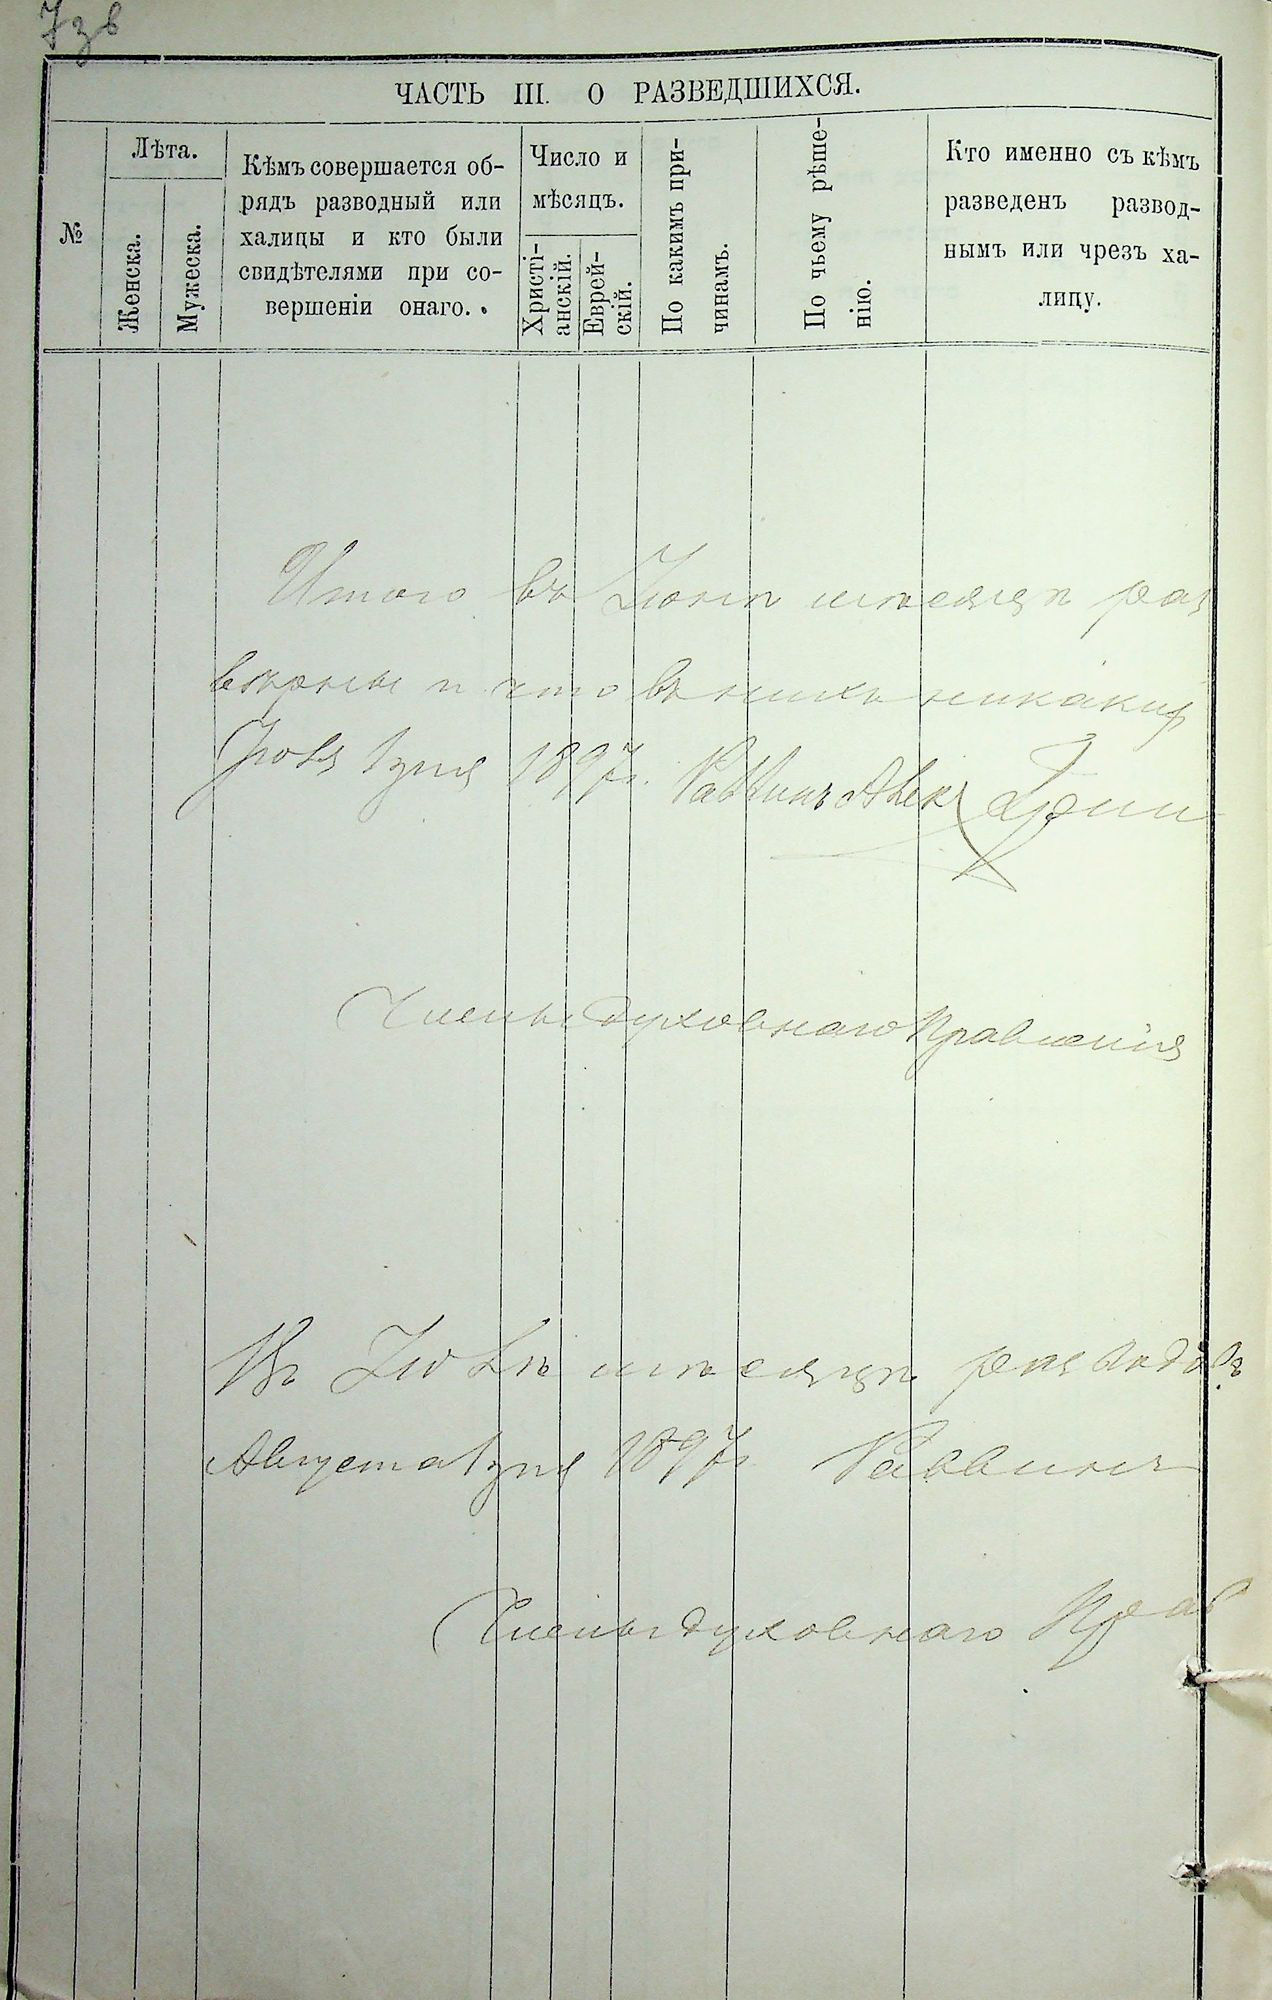 7зв
ЧАСТЬ III. О РАЗВЕДШИХСЯ.
№
Лѣта.
Женска.
Мужеска.
Кѣмъ совершается об-
рядъ разводный или
халицы и кто были
свидѣтелями при со-
вершеніи онаго.
Число и
мѣсяцъ.
Христі-
анскій.
Еврей-
скій.
По какимъ при-
чинамъ.
По чьему рѣше-
нію.
Кто именно съ кѣмъ
разведенъ развод-
нымъ или чрезъ ха-
лицу.
Итого въ Іюнѣ мѣсяцѣ раз
вѣрны и что въ нихъ никаких
Іюля 1 дня 1897 г. Раввинъ
Члены духовнаго Правленія
Въ Іюлѣ мѣсяцѣ разводов
Августа 1 дня 1897 г. Раввинъ
Члены духовнаго Прав